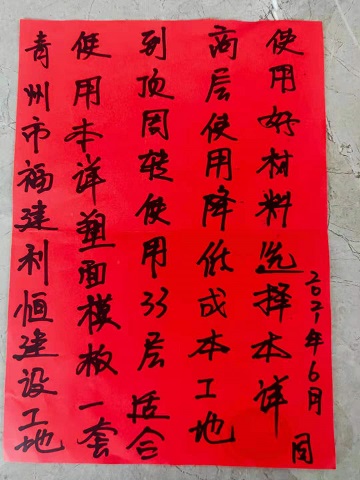 青州市福建利恒建设工地
使用本详塑面模板一套
到顶周转使用33层适合
高层使用降低成本工地
使用好材料选择本详
2021年6月